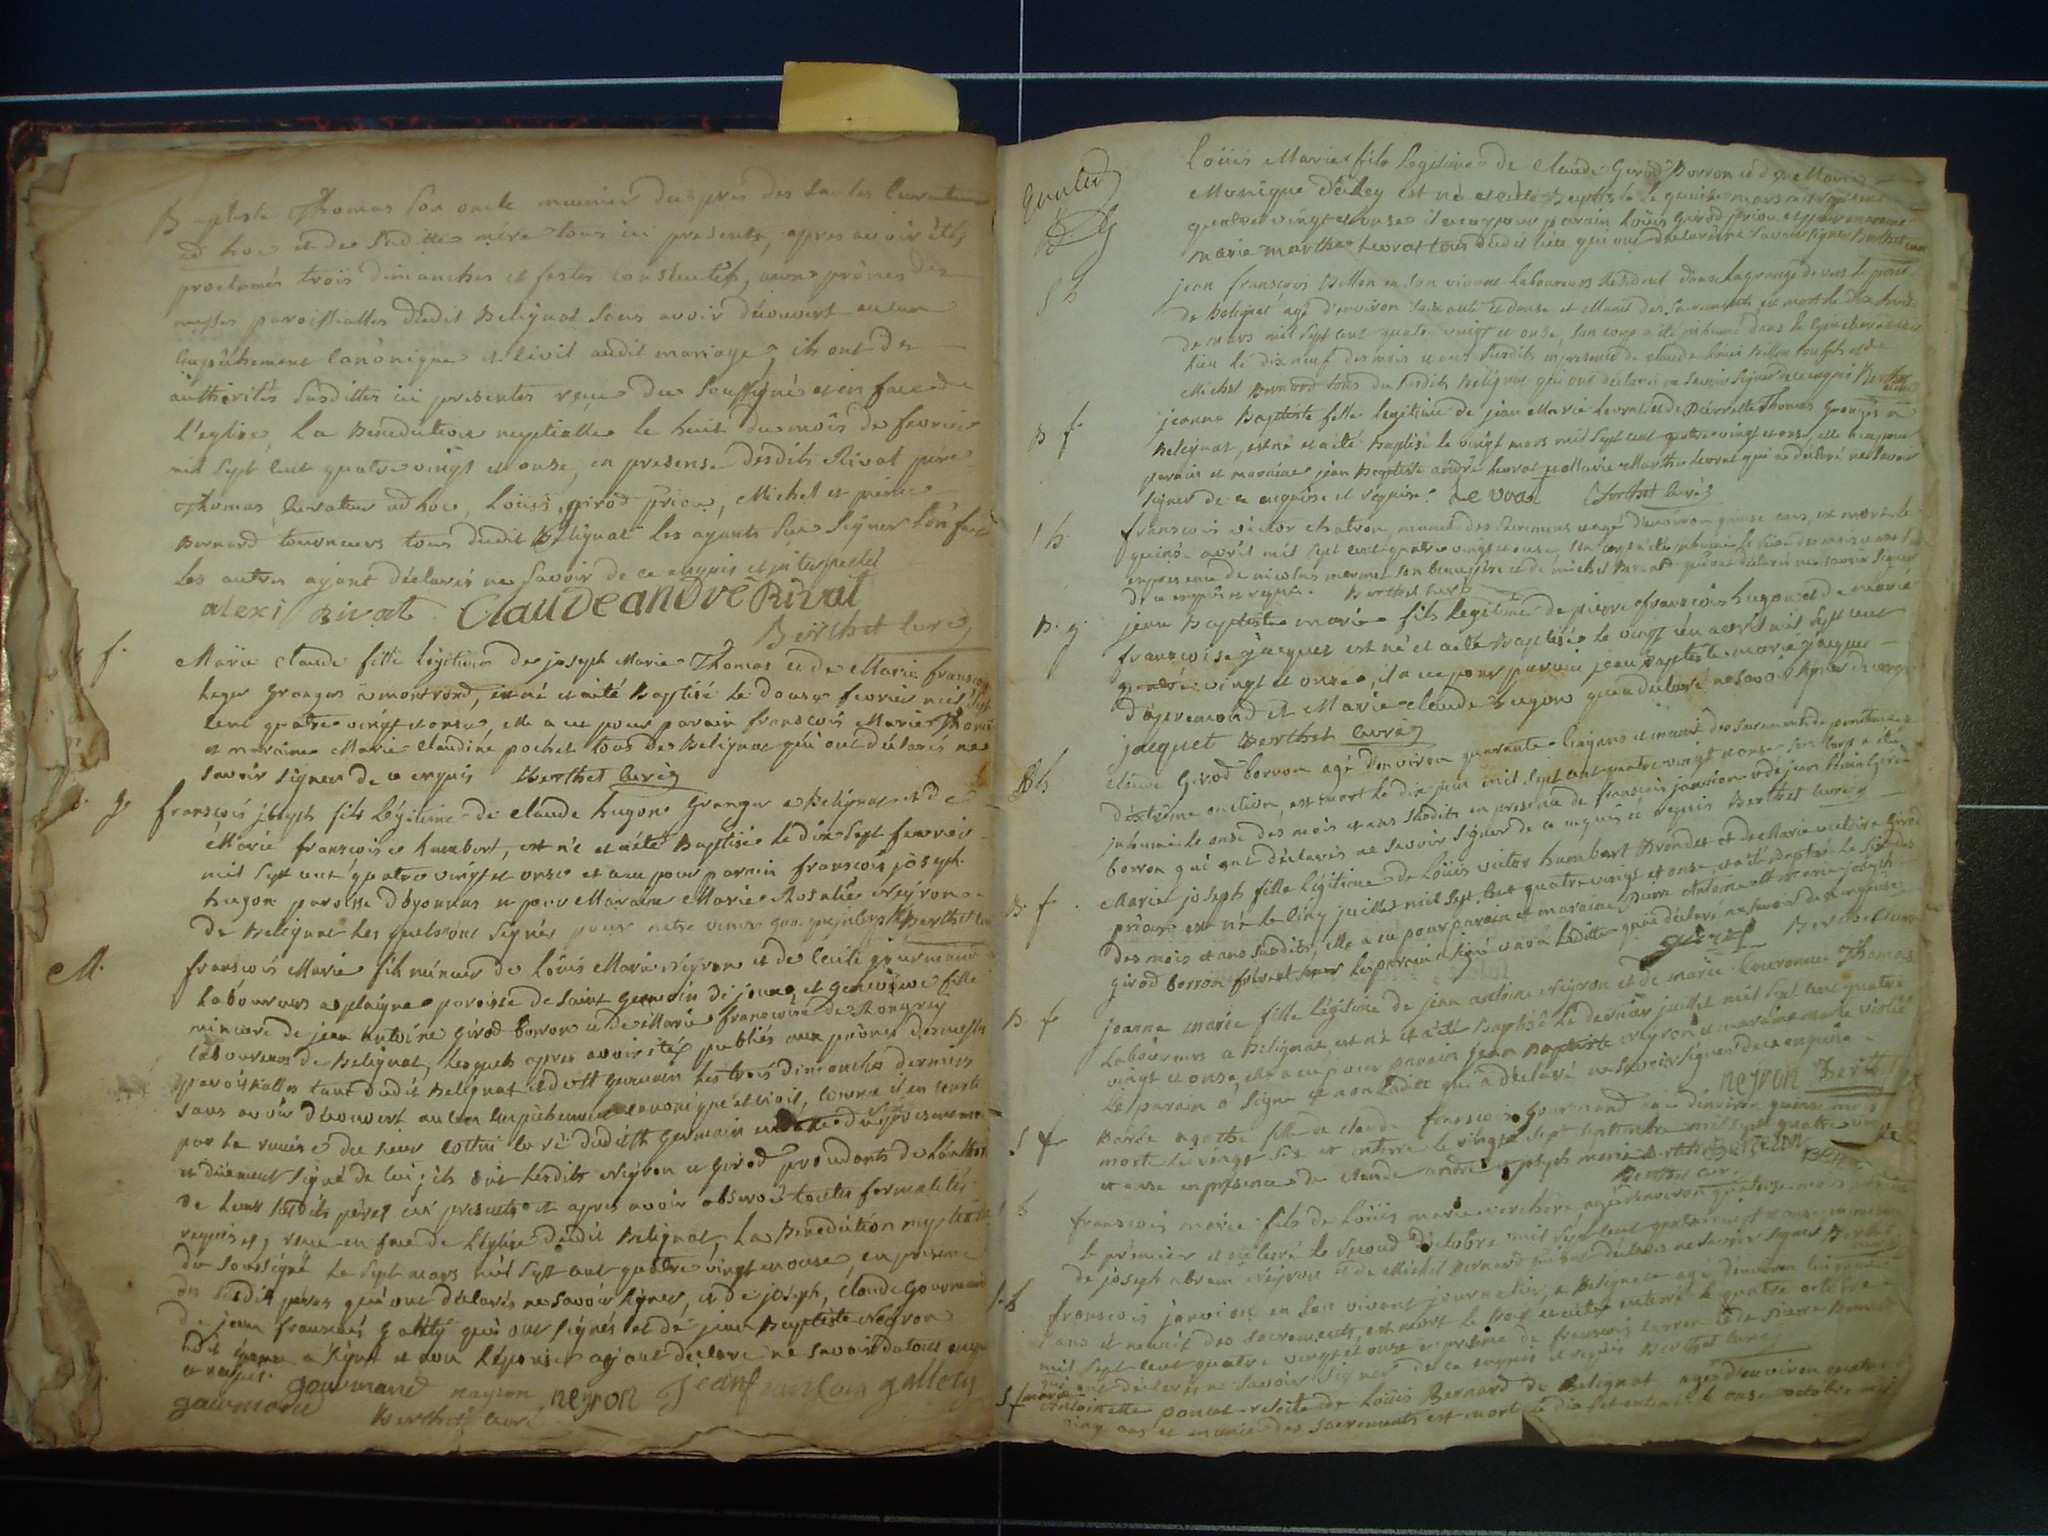 Baptiste Thomas son oncle meunier du pres des saules Curateur
ad hoc et de saditte mère tous ici presents, apres avoir étés
proclamés trois dimanches et festes consecutifs, aux prônes des
messes paroissialles dudit Belignat sans avoir découvert aucun
empêchement canonique et civil audit mariage, ils ont des
authorités susdittes ici presentes reçu du soussigné et en face de
l'eglise La Benediction nuptialle le huit du mois de fevrier
mil sept cent quatre vingt et onse, en presense desdits Rivat père
Thomas Curateur ad hoc, Louis girod prior, Michel et pierre
Bernard tourneurs tous dudit Belignat les ayants sus signer l'on fait
les autres ayant déclarés ne savoir de ce enquis et interpellés
alexi Rivat Claude andré Rivat
Berthet curé
f.
Marie claude fille légitime de joseph Marie Thomas et de Marie françoise
leger grangers a montrond, est né et a été Baptisé le douse fevrier mil sept
cent quatre vingt et onse, elle a eu pour parain franscois Marie Thomas
et maraine Marie claudine pochet tous de Belignat qui ont déclarés ne
savoir signer de ce enquis Berthet curé
B. g.
franscois joseph fils légitime de claude hugon granger a Belignat et de
Marie franscoise humbert, est né et a été Baptisé le dix sept fevrier
mil sept cent quatre vingt et onse et a eu pour parain franscois joseph
hugon paroisse d'oyonnax et pour Maraine Marie Rosalie Neyron
de Belignat les quels ont signés Berthet curé
M.
franscois Marie fils mineur de Louis Marie Neyron et de Cecile gourmand
laboureurs a plaigne paroisse de saint germain de joux et genevieve fille
mineure de jean antoine girod borron et de Marie franscoise de
laboureurs de Belignat, lesquels apres avoir étés publiés aux prônes des messes
paroissialles tant dudit Belignat et de St germain les trois dimanches derniers
sans avoir découvert aucun empêchement canonique et civil, comme il en conste
par la remise du sieur curé dudit St germain
et duement signé de lui; ils ont lesdits Neyron et girod
de leurs susdits pères ici presents et apres avoir observé toutes formalités
requises, reçu en face de l'église dudit Belignat, La Benediction nuptialle
du soussigné le sept mars mil sept cent quatre vingt et onse, en presence
des susdits peres qui ont déclarés ne savoir signer, et de joseph, claude gourmand
de jean franscois gallety qui ont signés et de jean Baptiste Neyron
et requis. gourmand nayron neyron Jean françois gallety
gourmand Berthet curé
Louis Marie fils legitime de claude Girod Borron et de Marie
Monique est né et a été Baptisé le quinse mars mil sept cent
quatre vingt et onse il a eu pour parain Louis Girod prior et pour maraine
marie marthe levrat tous dudit lieu qui ont déclarés ne savoir signer Berthet curé
S h
jean franscois Billon en son vivant laboureur résident dans la grange devers le pont
de Belignat agé d'environ soixante et douse et Munit des Sacrements est mort le dix huit
de mars mil sept cent quatre vingt et onse, son corps a été inhumé dans le cimetiere dudit
lieu le dix neuf des mois et ans susdits en presence de claude Louis Billon son fils et de
Michel Bernard tous du susdits Belignat qui ont déclarés ne savoir signer de ce enquis Berthet curé
B f.
jeanne Baptiste fille legitime de jean Marie Levrat et de Pierrette Thomas Grangers a
Belignat, est né et a été Baptisé le vingt mars mil sept cent quatre vingt et onse, elle a eu pour
parain et maraine jean Baptiste andré levrat et Marie Marthe levrat qui a déclaré ne savoir
signer de ce enquise et requise. Le vrat Berthet curé
S h.
franscois victor chatron munit des sacremens et agé d'environ quinse ans, est mort le
quinse avril mil sept cent quatre vingt et onse, son corps a été inhumé le
en presence de nicolas mermet son beau père et de michel Bernard qui ont déclarés ne savoir signer
de ce enquis et requis. Berthet curé
B. g.
jean Baptiste marie fils legitime de pierre franscois hugon et de marie
franscoise jacquet est né et a été Baptisé le vingt un avril mil sept cent
quatre vingt et onse, il a eu pour parain jean Baptiste marie jacquet
d'apremond et Marie claude hugon qui a déclaré ne savoir signer de ce enquis
jacquet Berthet curé
S h
claude Girod borron agé d'environ quarante ans et munit des sacrements de penitence
d'extrême onction, est mort le dix juin mil sept cent quatre vingt et onse son corps a été
inhumé le onse des mois et ans susdits en presence de franscois janvion et de jean Louis Girod
borron qui ont déclarés ne savoir signer de ce enquis et requis Berthet curé
B. f.
Marie joseph fille légitime de Louis victor humbert Brondet et de Marie victoire Girod
prior est né le cinq juillet mil sept cent quatre vingt et onse, et a été Baptisé le six des
des mois et ans susdits, elle a eu pour parain et maraine pierre antoine et Marie joseph
girod borron le parain signé et non laditte qui a déclaré ne savoir de ce enquise
girod Berthet curé
B f
jeanne marie fille légitime de jean antoine Neyron et de marie Couronne Thomas
Laboureurs a Belignat, est né et a été Baptisé le dernier juillet mil sept cent quatre
vingt et onse, elle a eu pour parain jean Baptiste Neyron et maraine marie
Le parain a signé et non laditte qui a déclaré ne savoir signer de ce enquise
neyron Berthet
S f
Barbe agathe fille de claude franscois gourmand agé d'environ quinse mois
morte le vingt six et enterré le vingt sept septembre mil sept quatre vingt
et onse en presence de claude andré et joseph marie
Berthet curé
S h
franscois marie fils de Louis marie verchere agé d'environ quatorse mois
le premier et enterré le second d'octobre mil sept cent quatre vingt et onse en presence
de joseph abram Neyron et de Michel Bernard qui ont déclarés ne savoir signer Berthet
S h
franscois janvion en son vivant journalier a Belignat agé d'environ cinquante
ans et munit des sacrements, est mort le trois et enterré le quatre octobre
mil sept cent quatre vingt et onse en presence de franscois carron et de pierre Bernard
qui ont déclarés ne savoir signer de ce enquis et requis Berthet curé
S f
marie Antoinette poncet relicte de Louis Bernard de Belignat agée d'environ quatre
cinq ans et munie des sacrements est mort le dix et enterré le onse octobre mil